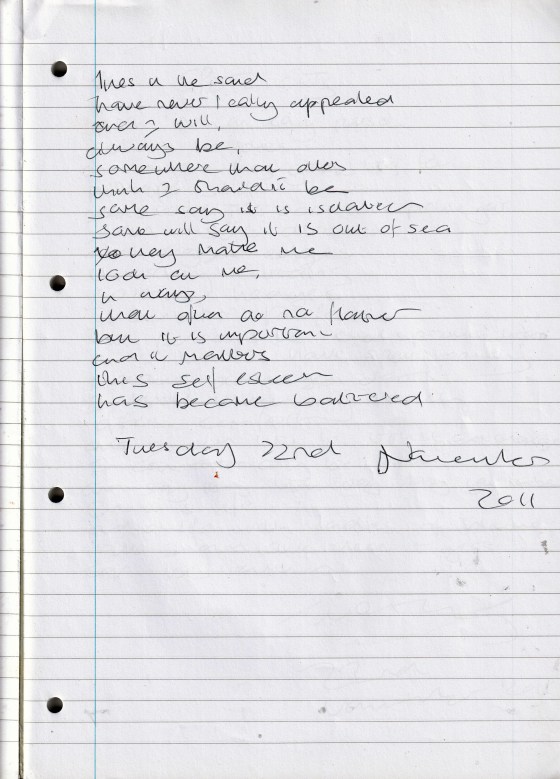 lines in the sand
have never really appealed
and I will,
always be,
somewhere that others
think I shouldn't be
some say it is
some will say it is out of sea
they make me
look at me,
in ways,
that often do no flatter
but it is important
and it matters
this self esteem
has become battered
Tuesday 22nd November
2011